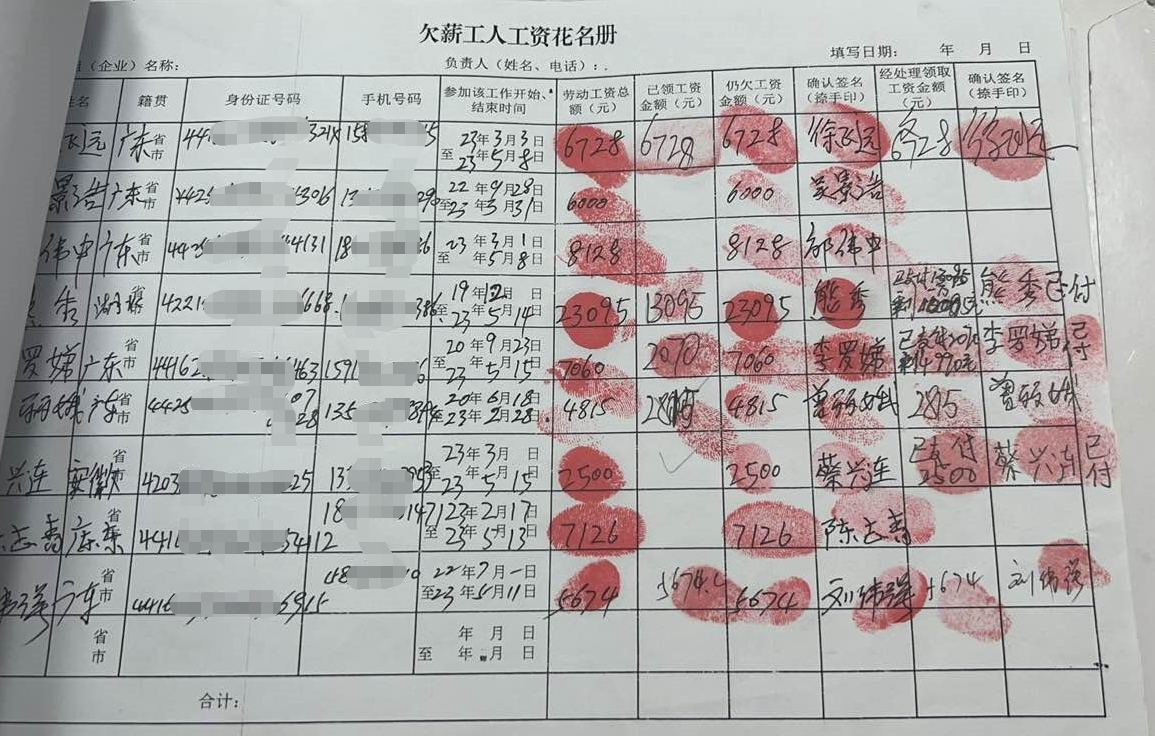 欠薪工人工资花名册
（企业）名称： 负责人（姓名、电话）： 填写日期： 年 月 日
姓名 籍贯 身份证号码 手机号码 参加该工作开始、结束时间 劳动工资总额（元） 已领工资金额（元） 仍欠工资金额（元） 确认签名（捺手印） 经处理领取工资金额（元） 确认签名（捺手印）
飞远 广东 省 市 441 321X 158 5 23年3月3日 至 23年5月8日 6728 6728 6728 徐飞远 6728 徐飞远
景浩 广东 省 市 442 3016 13 290 22年9月28日 至 23年3月31日 6000 6000 吴景浩
伟中 广东 省 市 442 4131 18 6 23年3月1日 至 年5月8日 8128 8128 邹伟中
秀 省 4221 668 386 19年12月 日 至 23年5月14日 23095 13095 23095 熊秀 已支付13095 熊秀 已付
罗娣 广东 省 市 44162 463 1591 6 20年9月23日 23年5月15日 7060 2070 7060 李罗娣 已支付2070 剩4990元 李罗娣 已付
广东 省 市 442 28 135 20年6月18日 至23年2月28日 4815 4815 2815
兴连 安徽 省 市 4203 25 13 23年3月 日 至 23年5月15日 2500 2500 蔡兴连 已支付2500 蔡兴连 已付
志青 广东 省 市 441 4112 18 147 23年2月17日 至23年5月13日 7126 7126 陈志青
广东 省 市 441 6915 0 22年7月1日 至23年5月11日 5674 5674 5674 刘伟强 5674 刘伟强
省 市 年 月 日 至 年 月 日
合计：